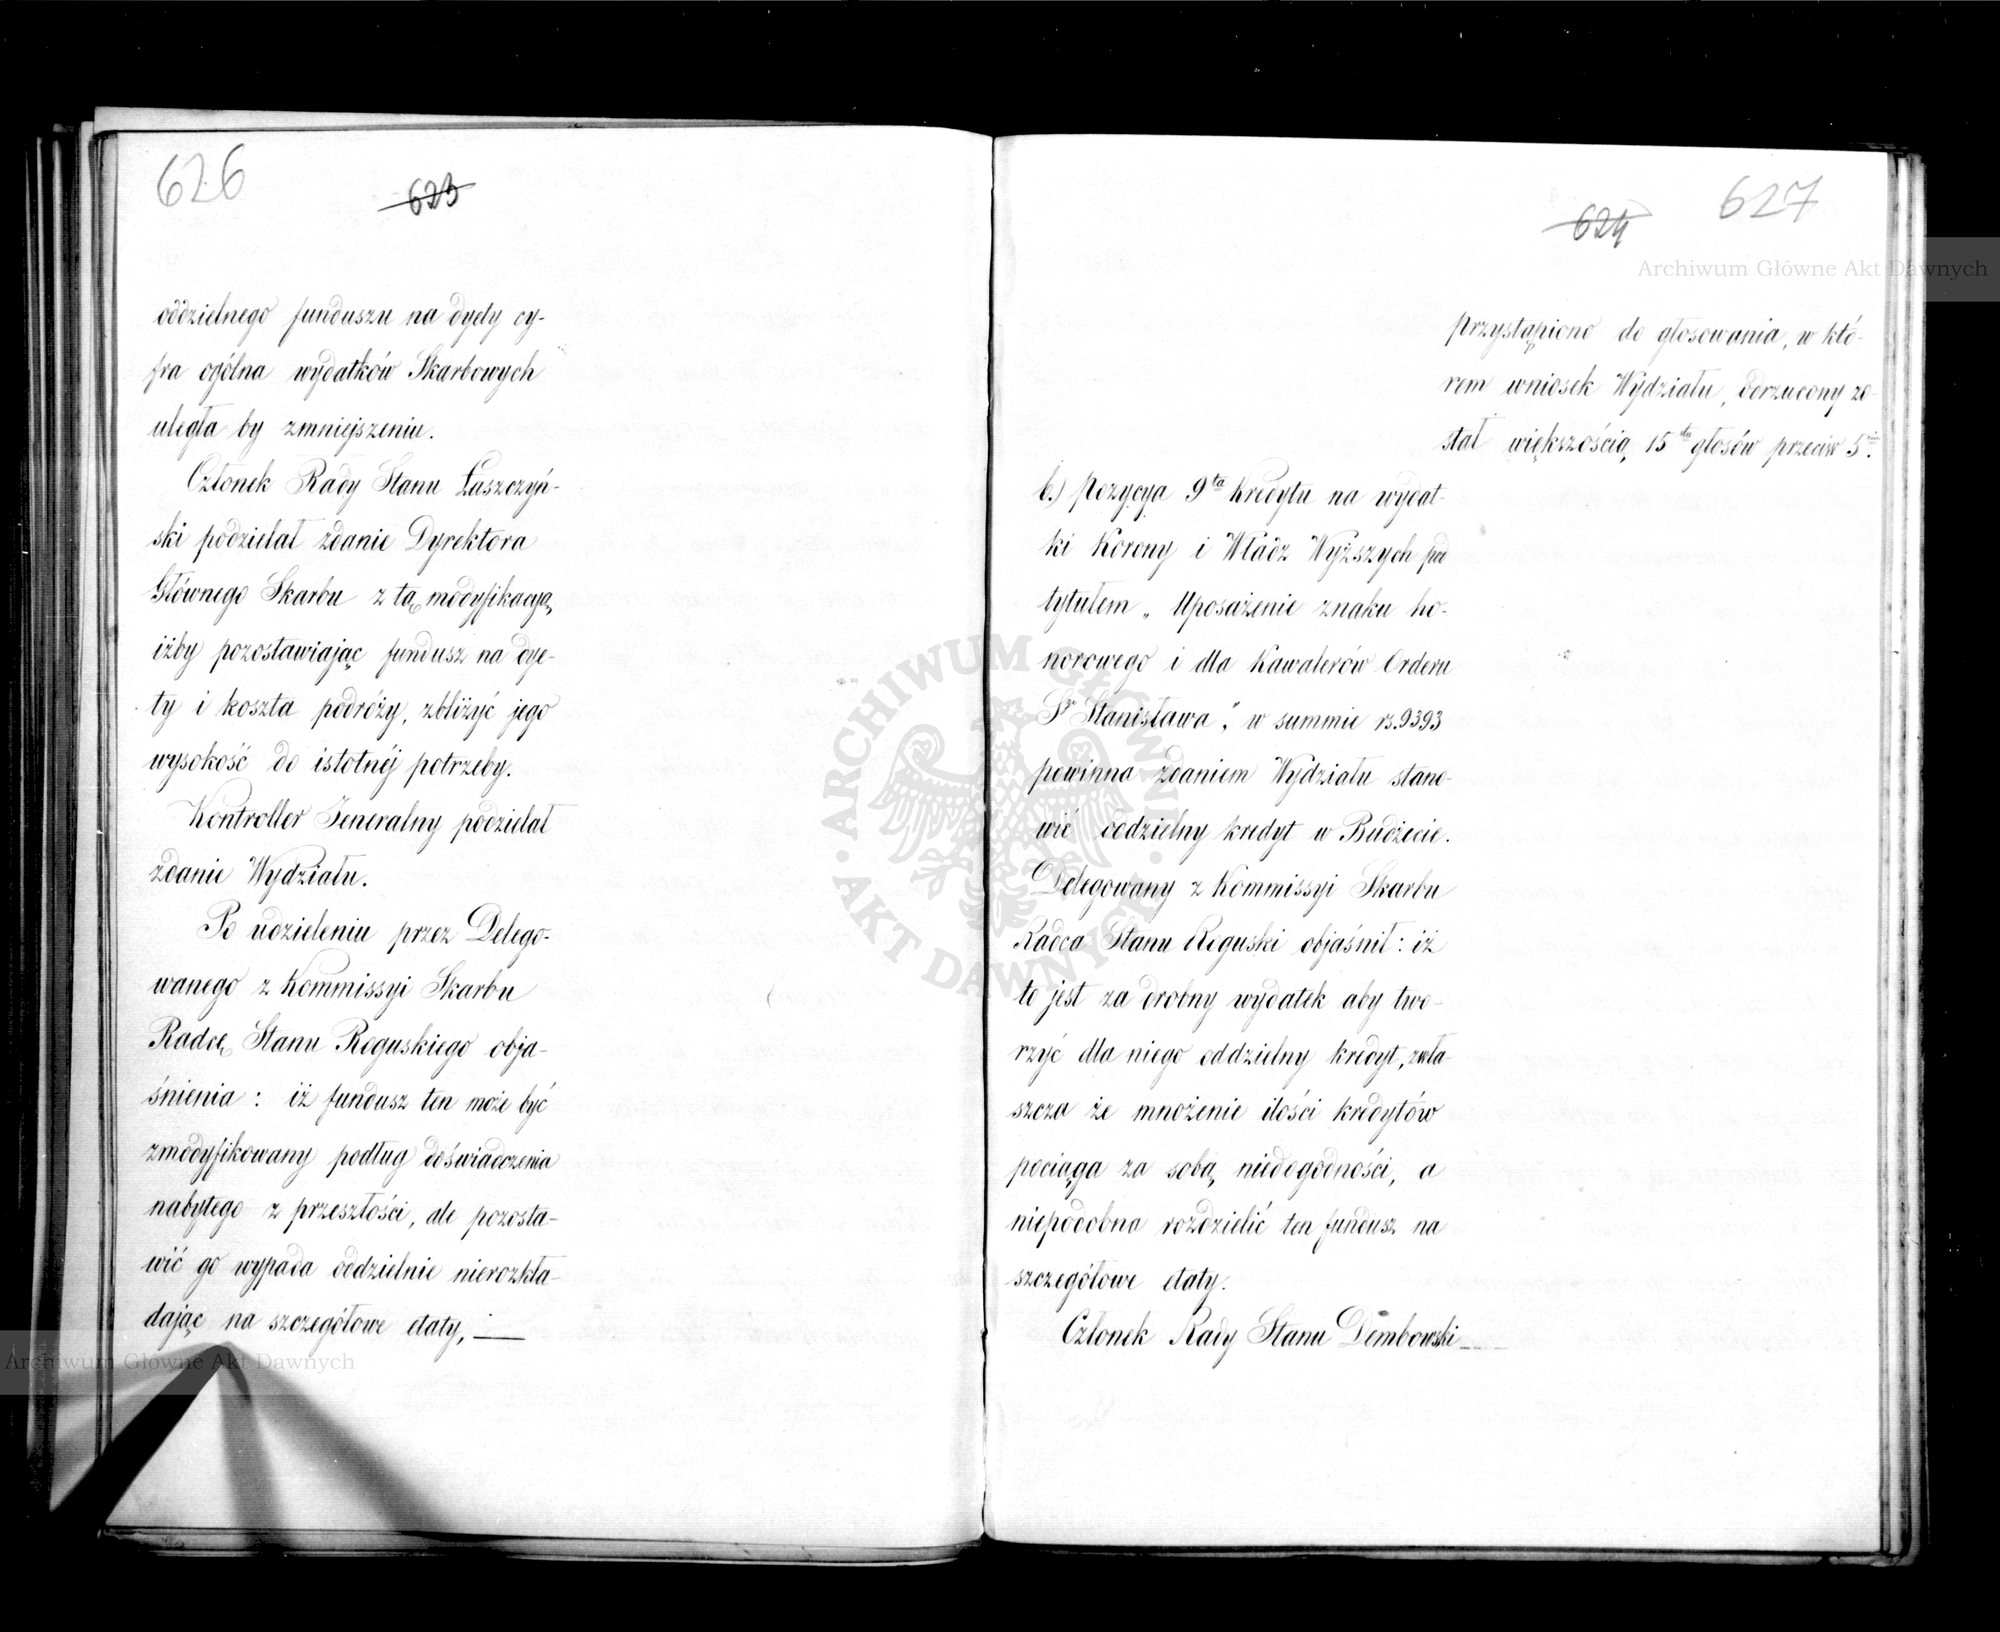 626
623
oddzielnego funduszu na dyety cy-
fra ogólna wydatków Skarbowych
uległa by zmniejszeniu.
Członek Rady Stanu Łaszczyń-
ski podzielał zdanie Dyrektora
Głównego Skarbu z tą modyfikacyą,
iżby pozostawiając fundusz na dye-
ty i koszta podróży, zbliżyć jego
wysokość do istotnéj potrzeby.
Kontroller Jeneralny podzielał
zdanie Wydziału.
Po udzieleniu przez Delego-
wanego z Kommissyi Skarbu
Radcę Stanu Roguskiego obja-
śnienia: iż fundusz ten może być
zmodyfikowany podług doświadczenia
nabytego z przeszłości, ale pozosta-
wić go wypada oddzielnie nierozkła-
dając na szczegółowe etaty, —
627
624
przystąpiono do głosowania, w któ-
rem wniosek Wydziału, odrzucony zo-
stał większością 15tu głosów przeciw 5ciu.
b.) Pozycya 9ta Kredytu na wydat-
ki Korony i Władz Wyższych pod
tytułem „Uposażenie znaku ho-
norowego i dla Kawalerów Orderu
Sgo Stanisława", w summie rs. 9393
powinna zdaniem Wydziału stano-
wić oddzielny kredyt w Budżecie.
Delegowany z Kommissyi Skarbu
Radca Stanu Roguski objaśnił: iż
to jest za drobny wydatek aby two-
rzyć dla niego oddzielny kredyt, zwła-
szcza że mnożenie ilości kredytów
pociąga za sobą niedogodności, a
niepodobna rozdzielić ten fundusz na
szczegółowe etaty.
Członek Rady Stanu Dembowski
Archiwum Główne Akt Dawnych
Archiwum Główne Akt Dawnych
ARCHIWUM GŁÓWNE AKT DAWNYCH